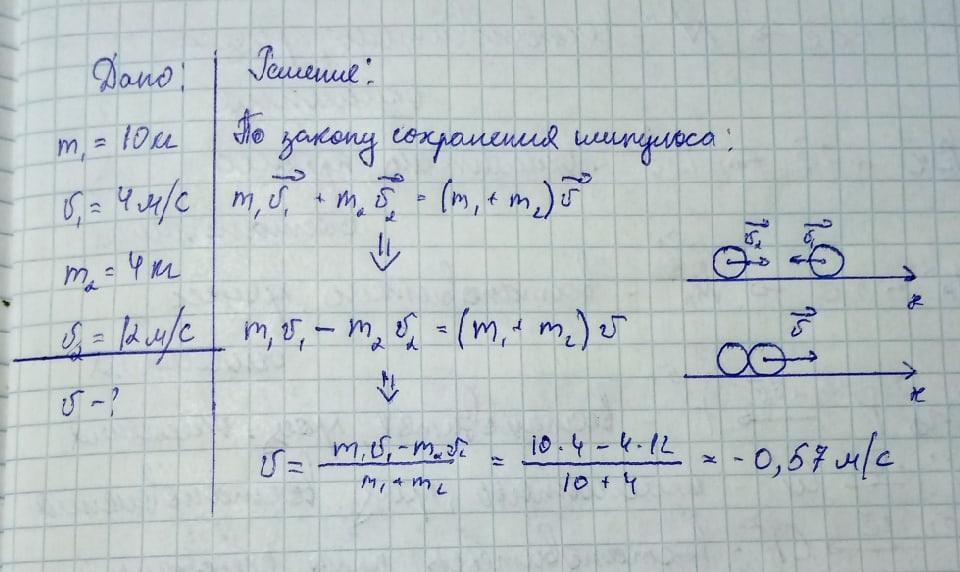 Дано:
m₁ = 10кг
v₁ = 4 м/с
m₂ = 4кг
v₂ = 12 м/с
v - ?
Решение:
По закону сохранения импульса:
m₁v⃗₁ + m₂v⃗₂ = (m₁ + m₂)v⃗
⇓
m₁v₁ − m₂v₂ = (m₁ + m₂)v
⇓
v = (m₁v₁ − m₂v₂)/(m₁ + m₂) = (10·4 − 4·12)/(10 + 4) ≈ −0,57 м/с
v⃗₂ v⃗₁
x
v⃗
x